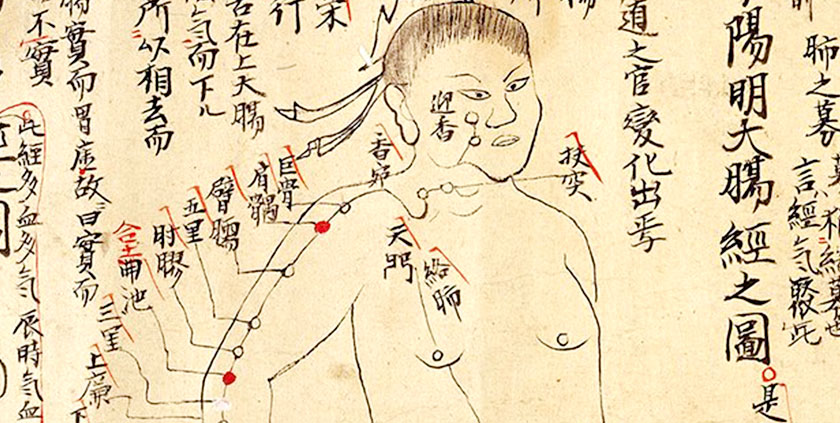 肺之募
言經氣發此
陽明大腸經之圖
是
道之官變化出焉
扶突
迎香
天
絡肺
巨骨
肩髃
臂臑
五里
肘膠
合土曲池
三里
上廉
下
行
在上大腸
氣而下
所以相去而
腸實而胃虛故曰實而
不實
此經多血多氣辰時氣血